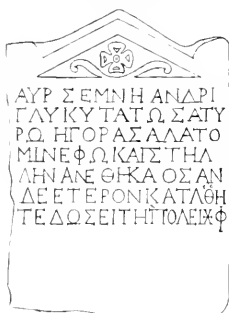 ΑΥΡ ΣΕΜΝΗ ΑΝΔΡΙ
ΓΛΥΚΥΤΑΤΩ ΣΑΤΥ
ΡΩ ΗΓΟΡΑΣΑ ΛΑΤΟ
ΜΙΝ ΕΦ Ω ΚΑΙ ΣΤΗΛ
ΛΗΝ ΑΝΕΘΗΚΑ ΟΣ ΑΝ
ΔΕ ΕΤΕΡΟΝ ΚΑΤΑΘΗ
ΤΕ ΔΩΣΕΙ ΤΗ ΠΟΛΕΙ